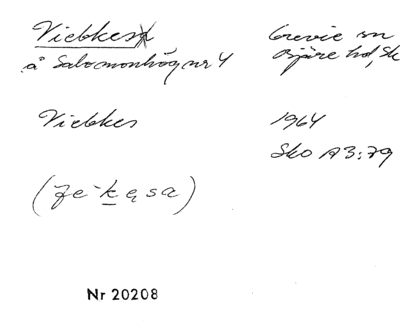 Viebkes
å Salomonhög nr 4
Grevie sn
Bjäre hd, Sk
Viebkes
1964
Sko A3:79
Nr 20208